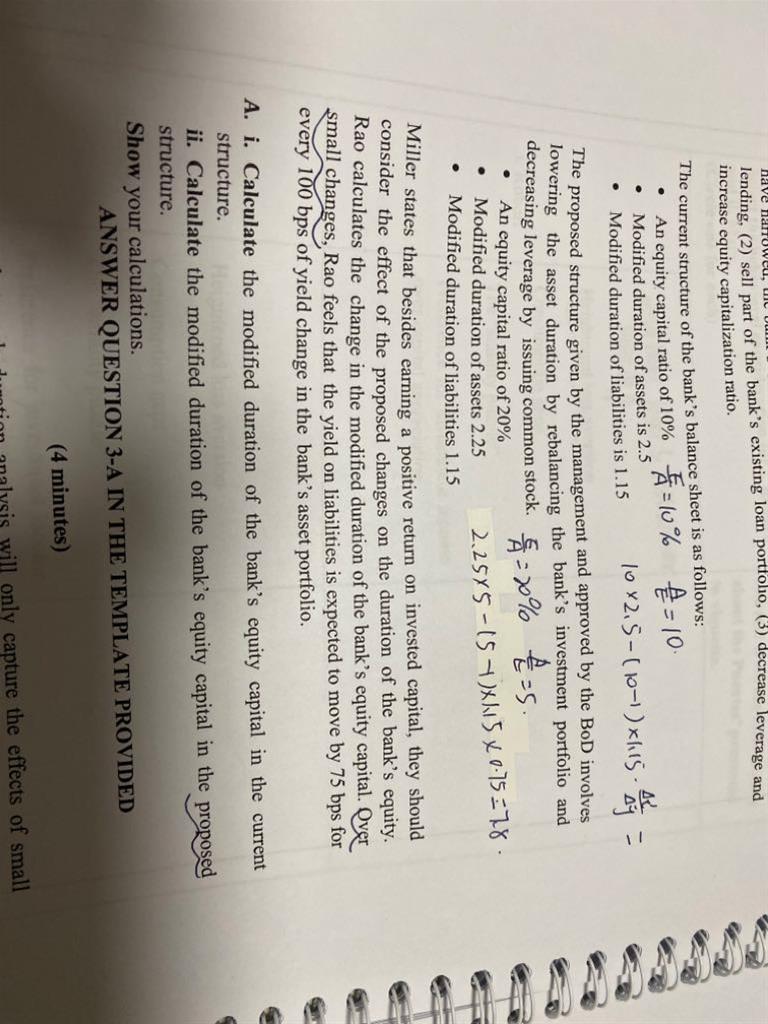 have narrowed, the bank's
lending, (2) sell part of the bank's existing loan portfolio, (3) decrease leverage and
increase equity capitalization ratio.
The current structure of the bank's balance sheet is as follows:
• An equity capital ratio of 10% E/A = 10% A/E = 10.
• Modified duration of assets is 2.5
• Modified duration of liabilities is 1.15 10 × 2.5 - (10-1) × 1.15 · Δi/Δy =
The proposed structure given by the management and approved by the BoD involves
lowering the asset duration by rebalancing the bank's investment portfolio and
decreasing leverage by issuing common stock. E/A = 20% A/E = 5.
• An equity capital ratio of 20%
• Modified duration of assets 2.25 2.25×5 - (5-1)×1.15×0.75=7.8.
• Modified duration of liabilities 1.15
Miller states that besides earning a positive return on invested capital, they should
consider the effect of the proposed changes on the duration of the bank's equity.
Rao calculates the change in the modified duration of the bank's equity capital. Over
small changes, Rao feels that the yield on liabilities is expected to move by 75 bps for
every 100 bps of yield change in the bank's asset portfolio.
A. i. Calculate the modified duration of the bank's equity capital in the current
structure.
ii. Calculate the modified duration of the bank's equity capital in the proposed
structure.
Show your calculations.
ANSWER QUESTION 3-A IN THE TEMPLATE PROVIDED
(4 minutes)
duration analysis will only capture the effects of small